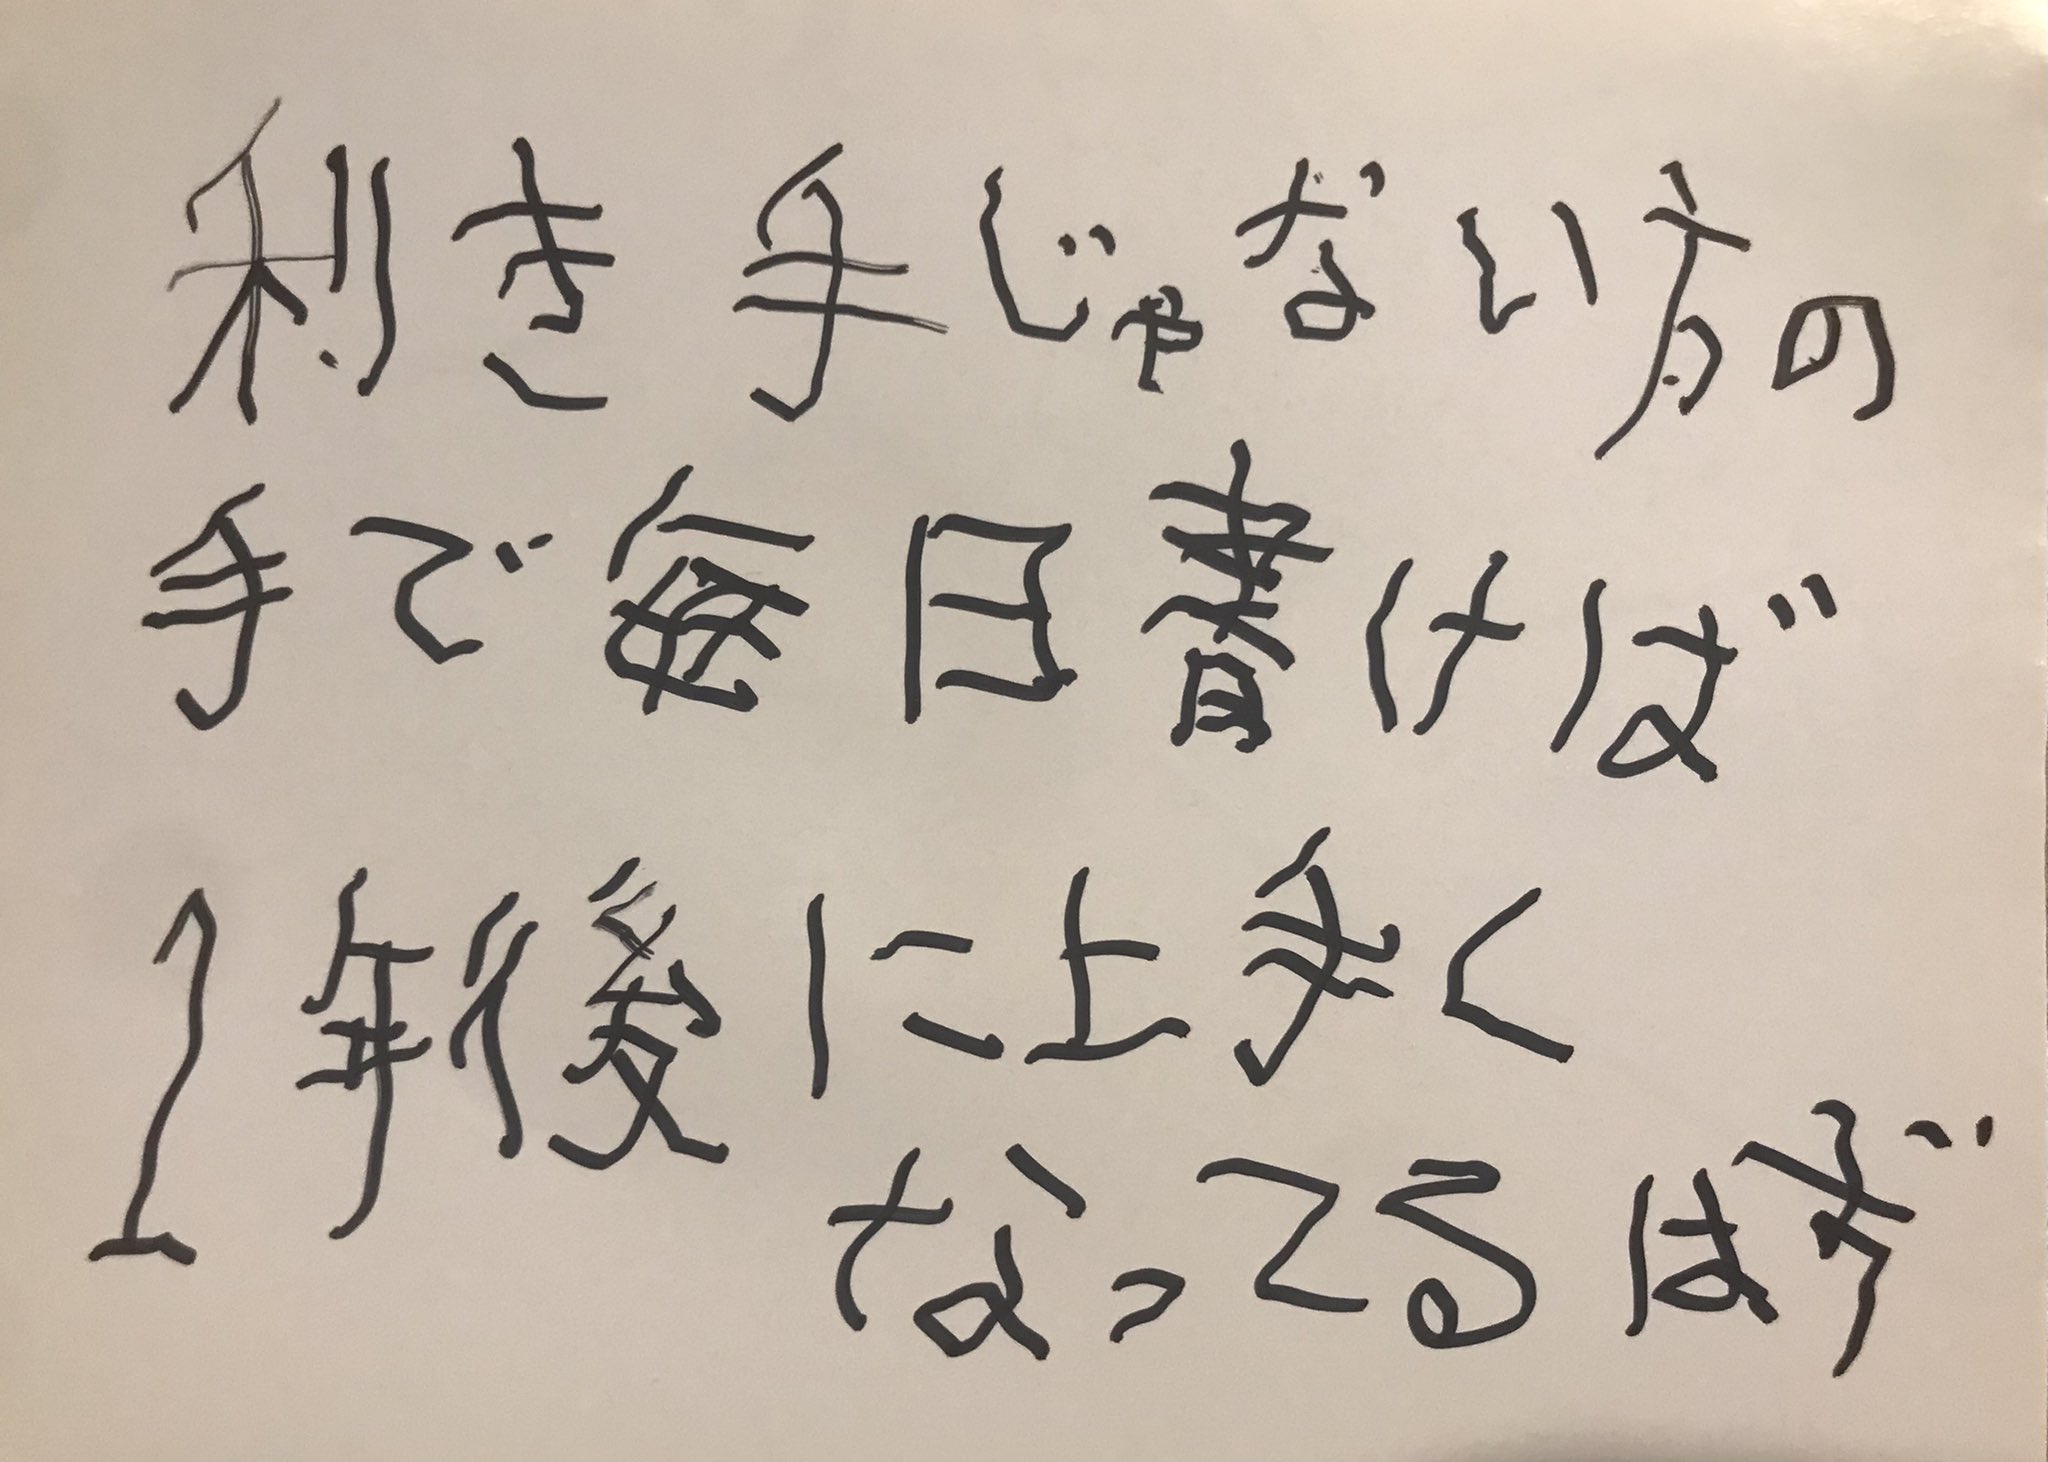 利き手じゃない方の
手で毎日書けば
1年後に上手く
なってるはず